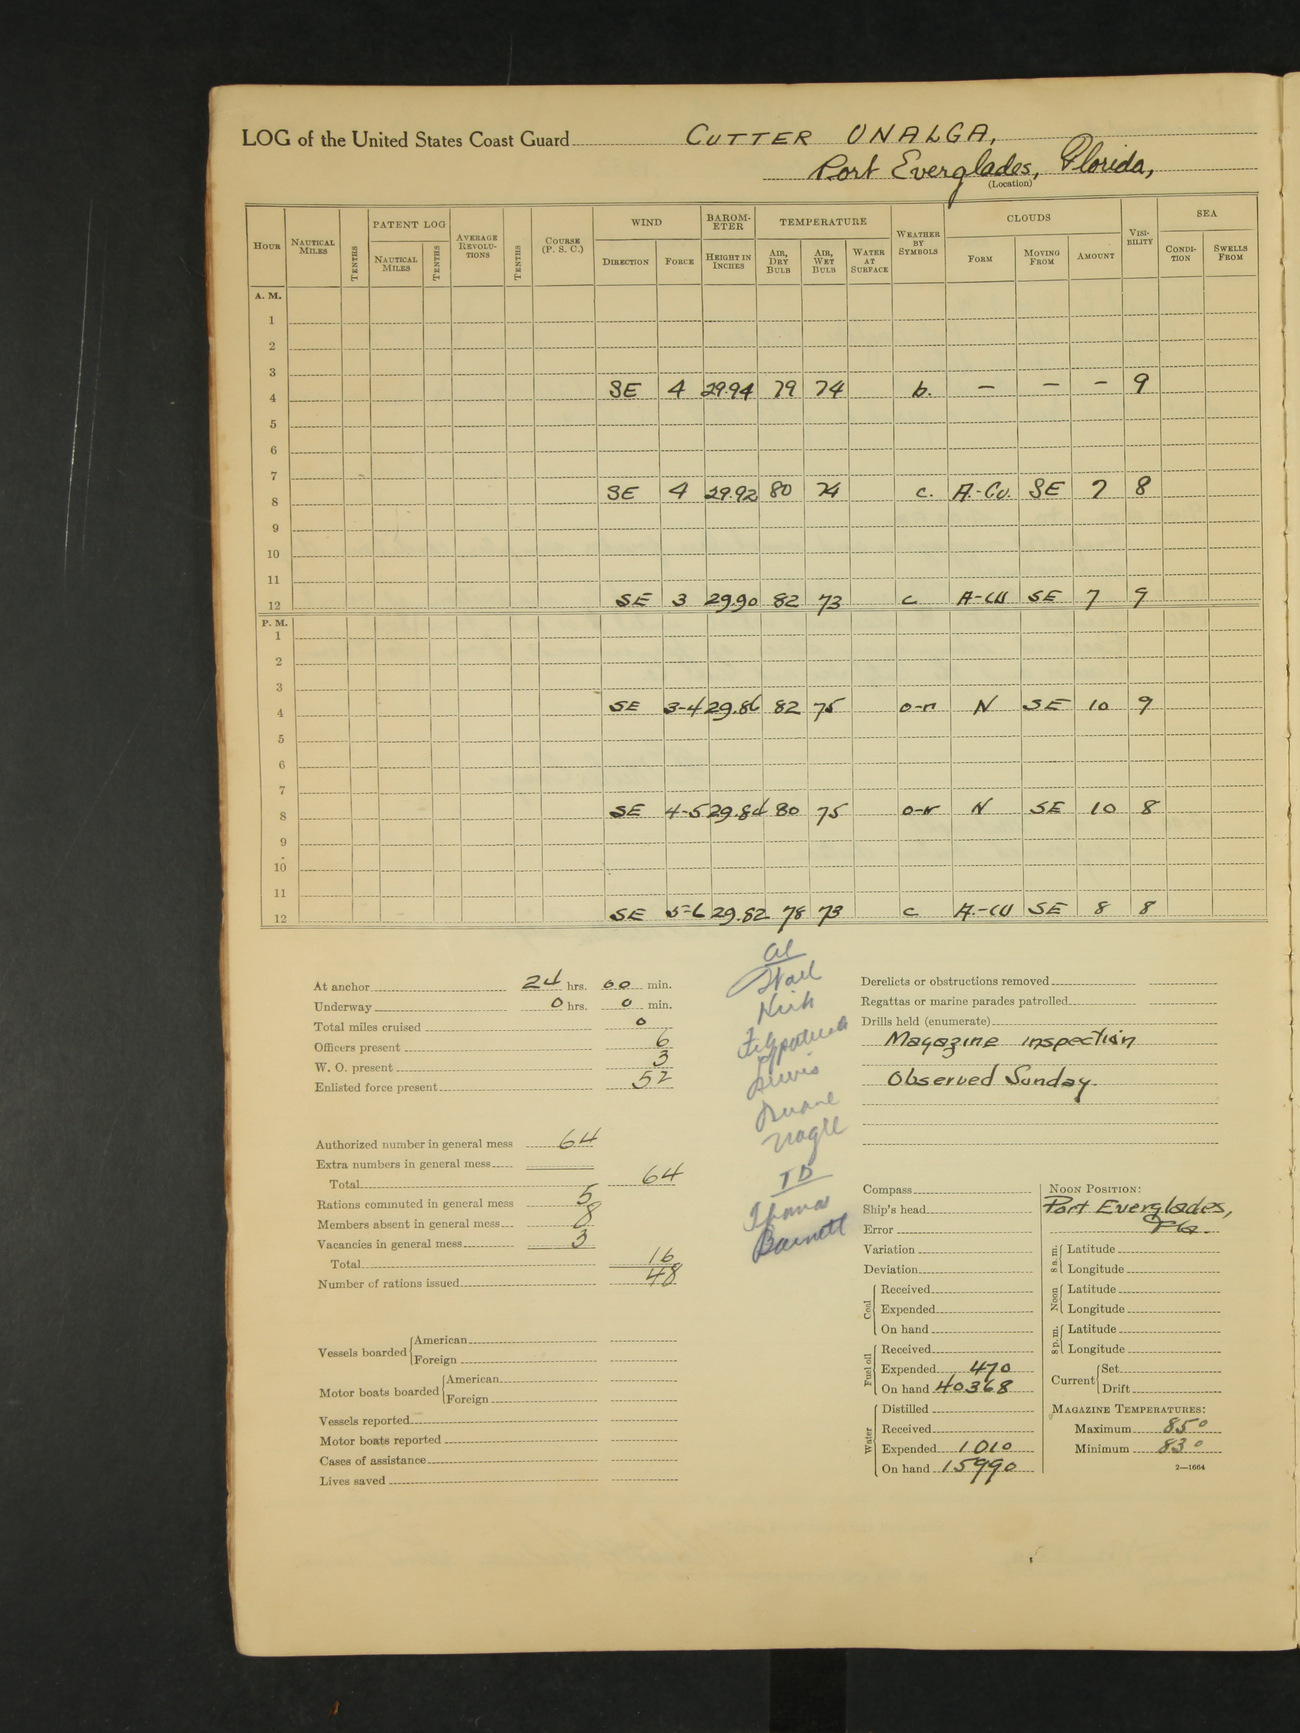 LOG of the United States Coast Guard CUTTER UNALGA,
Port Everglades, Florida,
(Location)
HOUR NAUTICAL MILES TENTHS PATENT LOG NAUTICAL MILES TENTHS AVERAGE REVOLU-TIONS TENTHS COURSE (P. S. C.) WIND DIRECTION FORCE BAROM-ETER HEIGHT IN INCHES TEMPERATURE AIR, DRY BULB AIR, WET BULB WATER AT SURFACE WEATHER BY SYMBOLS CLOUDS FORM MOVING FROM AMOUNT VISI-BILITY SEA CONDI-TION SWELLS FROM
A. M.
1
2
3
4 SE 4 29.94 79 74 b. – – – 9
5
6
7
8 SE 4 29.92 80 74 c. A.-Cu. SE 7 8
9
10
11
12 SE 3 29.90 82 73 c A-CU SE 7 9
P. M.
1
2
3
4 SE 3-4 29.86 82 75 o-r N SE 10 9
5
6
7
8 SE 4-5 29.84 80 75 o-r N SE 10 8
9
10
11
12 SE 5-6 29.82 78 73 c A.-CU SE 8 8
At anchor 24 hrs. 00 min.
Underway 0 hrs. 0 min.
Total miles cruised 0
Officers present 6
W. O. present 3
Enlisted force present 52
Authorized number in general mess 64
Extra numbers in general mess
Total 64
Rations commuted in general mess 5
Members absent in general mess 8
Vacancies in general mess 3
Total 16
Number of rations issued 48
Vessels boarded American
Foreign
Motor boats boarded American
Foreign
Vessels reported
Motor boats reported
Cases of assistance
Lives saved
al
Fitzpatrick
Duane
Nagle
TD
Thomas
Barnett
Derelicts or obstructions removed
Regattas or marine parades patrolled
Drills held (enumerate)
Magazine inspection
Observed Sunday.
Compass
Ship's head
Error
Variation
Deviation
Coal Received
Expended
On hand
Fuel oil Received
Expended 470
On hand 40368
Water Distilled
Received
Expended 1010
On hand 15990
NOON POSITION:
Port Everglades,
Fla.
8 a. m. Latitude
Longitude
Noon Latitude
Longitude
8 p. m. Latitude
Longitude
Current Set
Drift
MAGAZINE TEMPERATURES:
Maximum 85°
Minimum 83°
2—1664